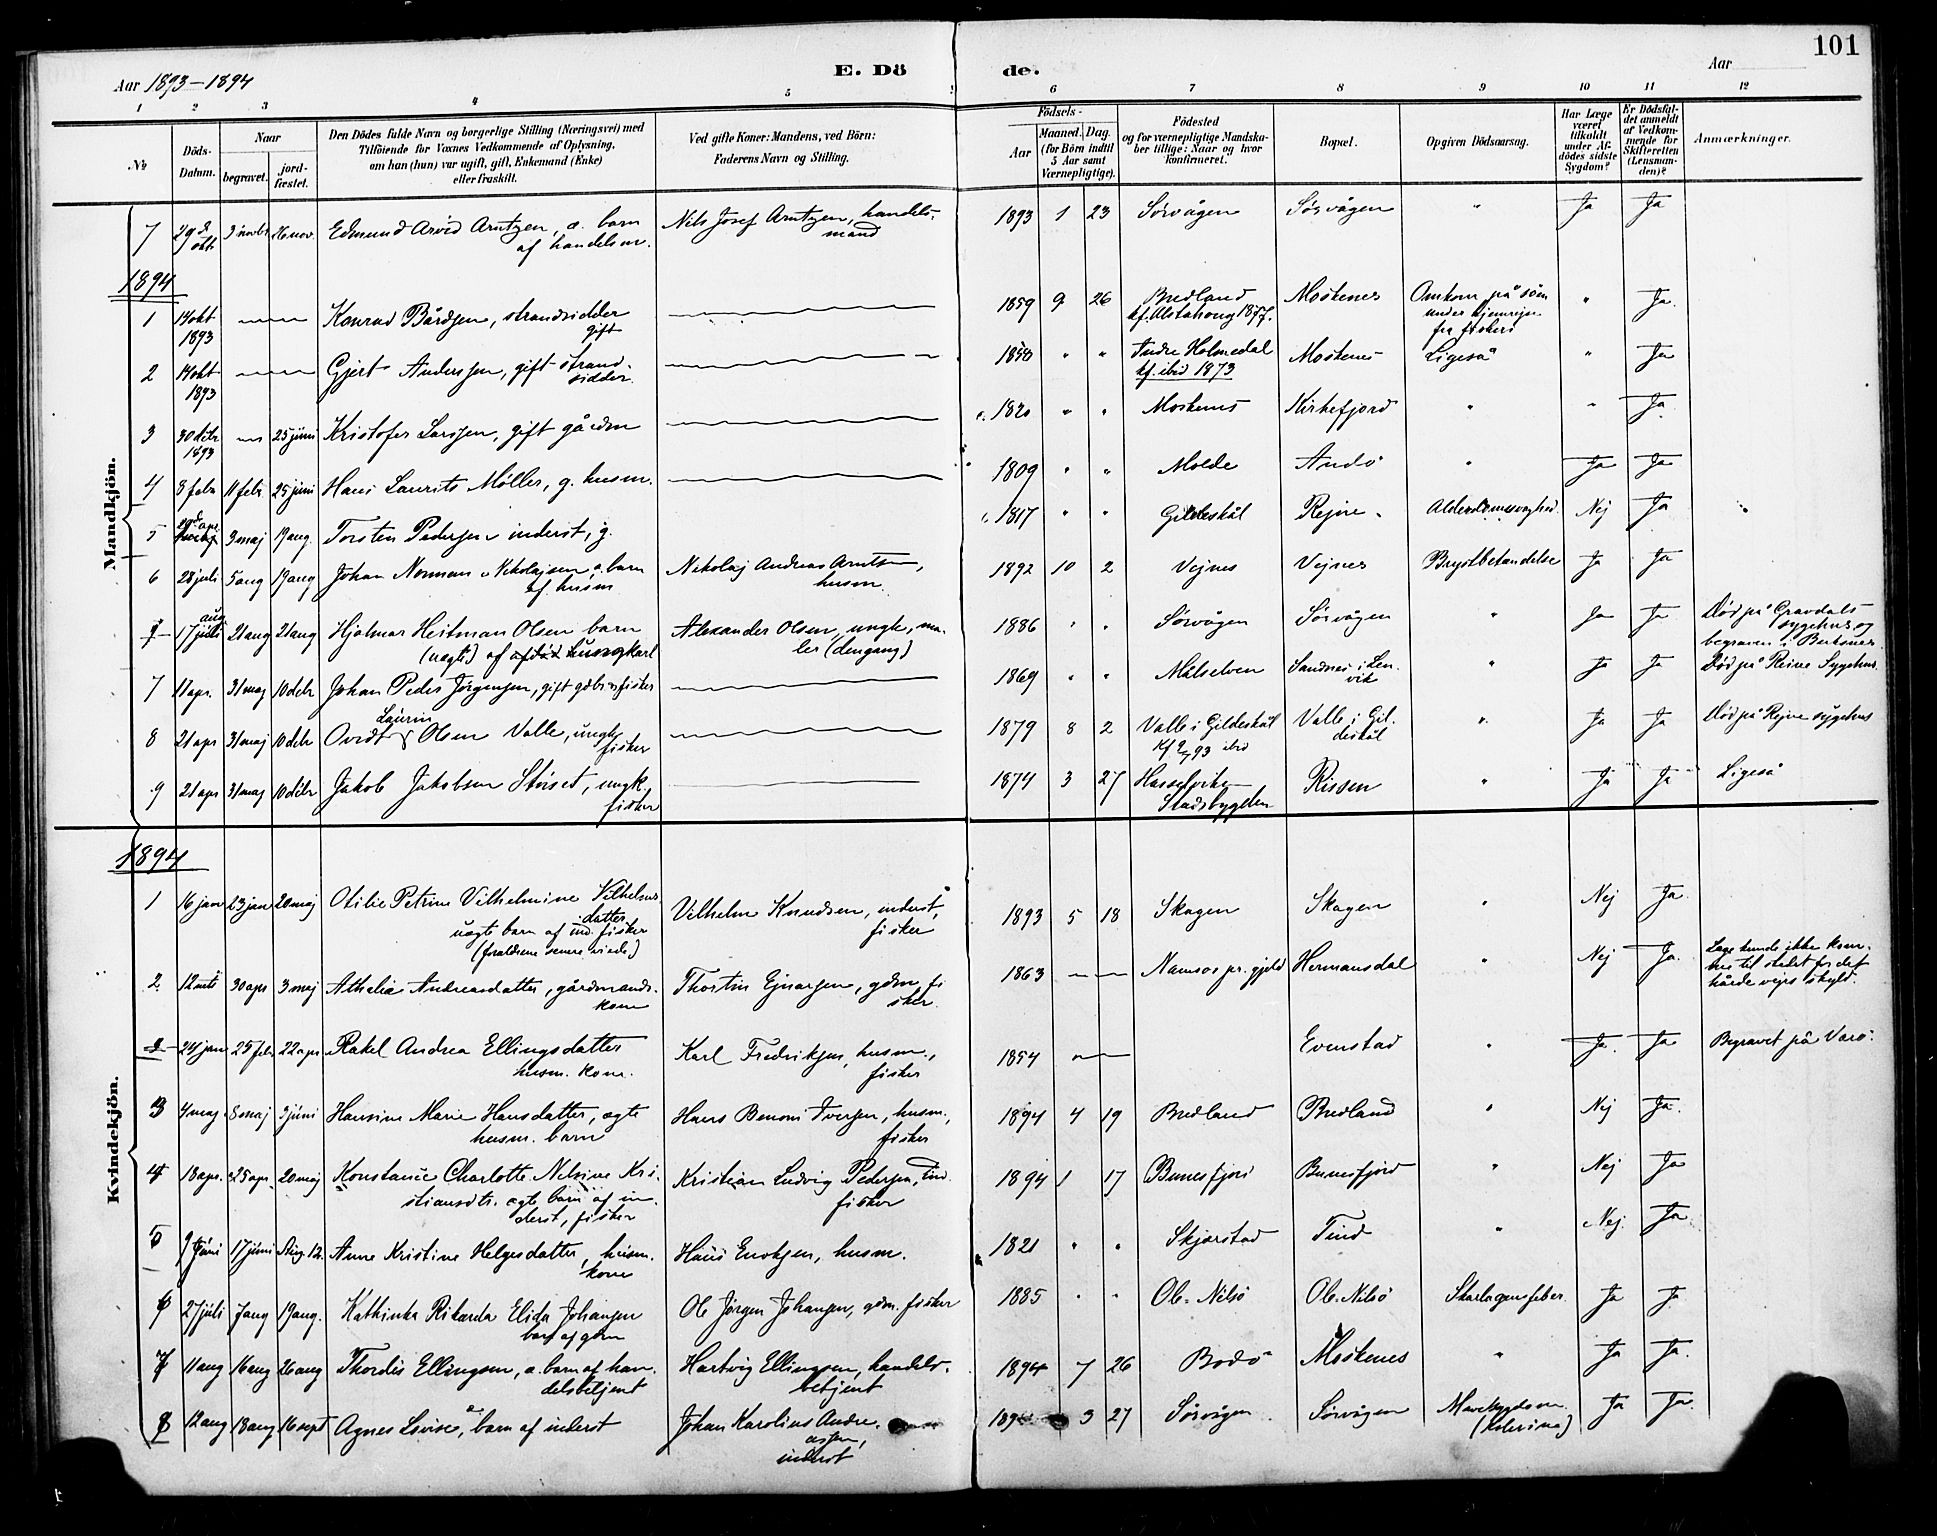 101
Aar 1893–1894
E. Dö de.
Aar
1 2 3 4 5 6 7 8 9 10 11 12
No
Döds-Datum.
Naar begravet. jordfæstet.
Den Dödes fulde Navn og borgerlige Stilling (Næringsvei) med Tilföiende for Voxnes Vedkommende af Oplysning, om han (hun) var ugift, gift, Enkemand (Enke) eller fraskilt.
Ved gifte Koner: Mandens, ved Börn: Faderens Navn og Stilling.
Födsels-
Aar Maaned. Dag. (for Börn indtil 5 Aar samt Værnepligtige).
Födested og for værnepligtige Mandskaber tillige: Naar og hvor konfirmeret.
Bopæl.
Opgiven Dödsaarsag.
Har Læge været tilkaldt under Afdödes sidste Sygdom?
Er Dödsfaldet anmeldt af Vedkommende for Skifteretten (Lensmanden)?
Anmærkninger.
Mandkjön.
7 29 okt. 3 novbr 26 nov. Edmund Arvid Arntzen, æ. barn af handelsm. Nils Josef Arntzen, handelsmand 1893 1 23 Sörvågen Sörvågen " Ja Ja
1894
1 14 okt 1893 Konrad Bårdsen, strandsidder gift 1859 9 26 Bredland kf. Alstahoug 1877. Moskenes Omkom på söen under hjemrejse fra fiskeri " Ja
2 14 okt 1893 Gjert Anderssen, gift strandsidder. 1858 " " Indre Holmedal kf. ibid 1873 Moskenes Ligeså " Ja
3 30 dcbr 1893 25 juni Kristofer Larssen, gift gårdm 1820 " " Moskenes Kirkefjord " " Ja
4 8 febr 11 febr. 25 juni Hans Laurits Möller, g. husm. 1809 " " Molde Andö " Ja Ja
5 apr. 3 maj 19 aug. Torsten Pedersen inderst, g. 1817 " " Gildeskål Rejne Alderdomssvaghed. Nej Ja
6 28 juli 5 aug 19 aug Johan Norman Nikolajsen, æ. barn af husm Nikolaj Andreas Arntsen, husm. 1892 10 2 Vejnes Vejnes Brystbetændelse Ja Ja
7 17 juli aug 21 aug 21 aug Hjalmar Heitman Olsen barn (uægte) af ungkarl Alexander Olsen, ungk., maler (dengang) 1886 " " Sörvågen Sörvågen " Ja Ja Död på Gravdals sygehus og begraven i Buksnes
7 17 apr. 31 maj 10 dcbr Johan Peder Jörgensen, gift gdbr fisker 1869 " " Målselven Sandnes i Lenvik " Ja Ja Död på Reine Sygehus
8 21 apr 31 maj 10 dcbr Ovidt Laurin Olsen Valle, ungk. fisker 1879 8 2 Valle i Gildeskål Kf 93 ibid Valle i Gildeskål " Ja Ja Död på Rejne sygehus
9 21 apr 31 maj 10 dcbr Jakob Jakobsen Störset, ungk. fisker 1874 3 27 Hasselviken Stadsbygden Rissen " Ja Ja Ligeså
1894
Kvindekjön.
1 16 jan 23 jan 20 maj Otilie Petrine Vilhelmine Vilhelmsdatter uægte barn af ind. fisker (forældrene senere viede) Vilhelm Knudsen, inderst, fisker 1893 5 18 Skagen Skagen " Nej Ja
2 12 mts 30 apr 3 maj Athalia Andreasdatter, gårdmandskone Thostin Ejnarsen, gdm. fisker. 1863 Namsos pr. gjeld Hermansdal " Nej Ja Læge kunde ikke komme til stedet for det hårde vejrs skyld.
3 24 jan 25 febr 22 apr Rakel Andrea Ellingsdatter husm. kone. Karl Fredriksen, husm., fisker 1854 Evenstad " Ja Ja Begravet på Værö.
3 4 maj 8 maj 3 juni Hansine Marie Hansdatter, ægte husm. barn Hans Benoni Iversen, husm., fisker 1894 4 19 Bredland Bredland " Nej Ja
4 18 apr. 25 apr. 20 maj Konstance Charlotte Nelsine Kristiansdtr. ægte barn af inderst, fisker Kristian Ludvig Pedersen, ind. fisker 1894 1 17 Bunesfjord Bunesfjord " Nej Ja
5 9 juni 17 juni Aug. 12. Anne Kristine Helgesdatter, husm. kone Hans Enoksen, husm. 1821 " " Skjerstad Tind " Nej Ja
6 27 juli 7 aug 19 aug. Kathinka Rikarda Elida Johansen barn af gdm Ole Jörgen Johansen, gdm. fisker 1885 " " Ol-Nilsö Ol-Nilsö Skarlagensfeber Ja Ja
7 11 aug 16 aug 26 aug Thordis Ellingsen, æ. barn af handelsbetjent Hartvig Ellingsen, handelsbetjent 1894 7 26 Bodö Moskenes " Ja Ja
8 12 aug 18 aug 16 sept Agnes Lovise, barn af inderst Johan Karolius Andreassen, inderst 189 3 27 Sörvågen Sörvågen Mavesygdom (kolerina) Ja Ja